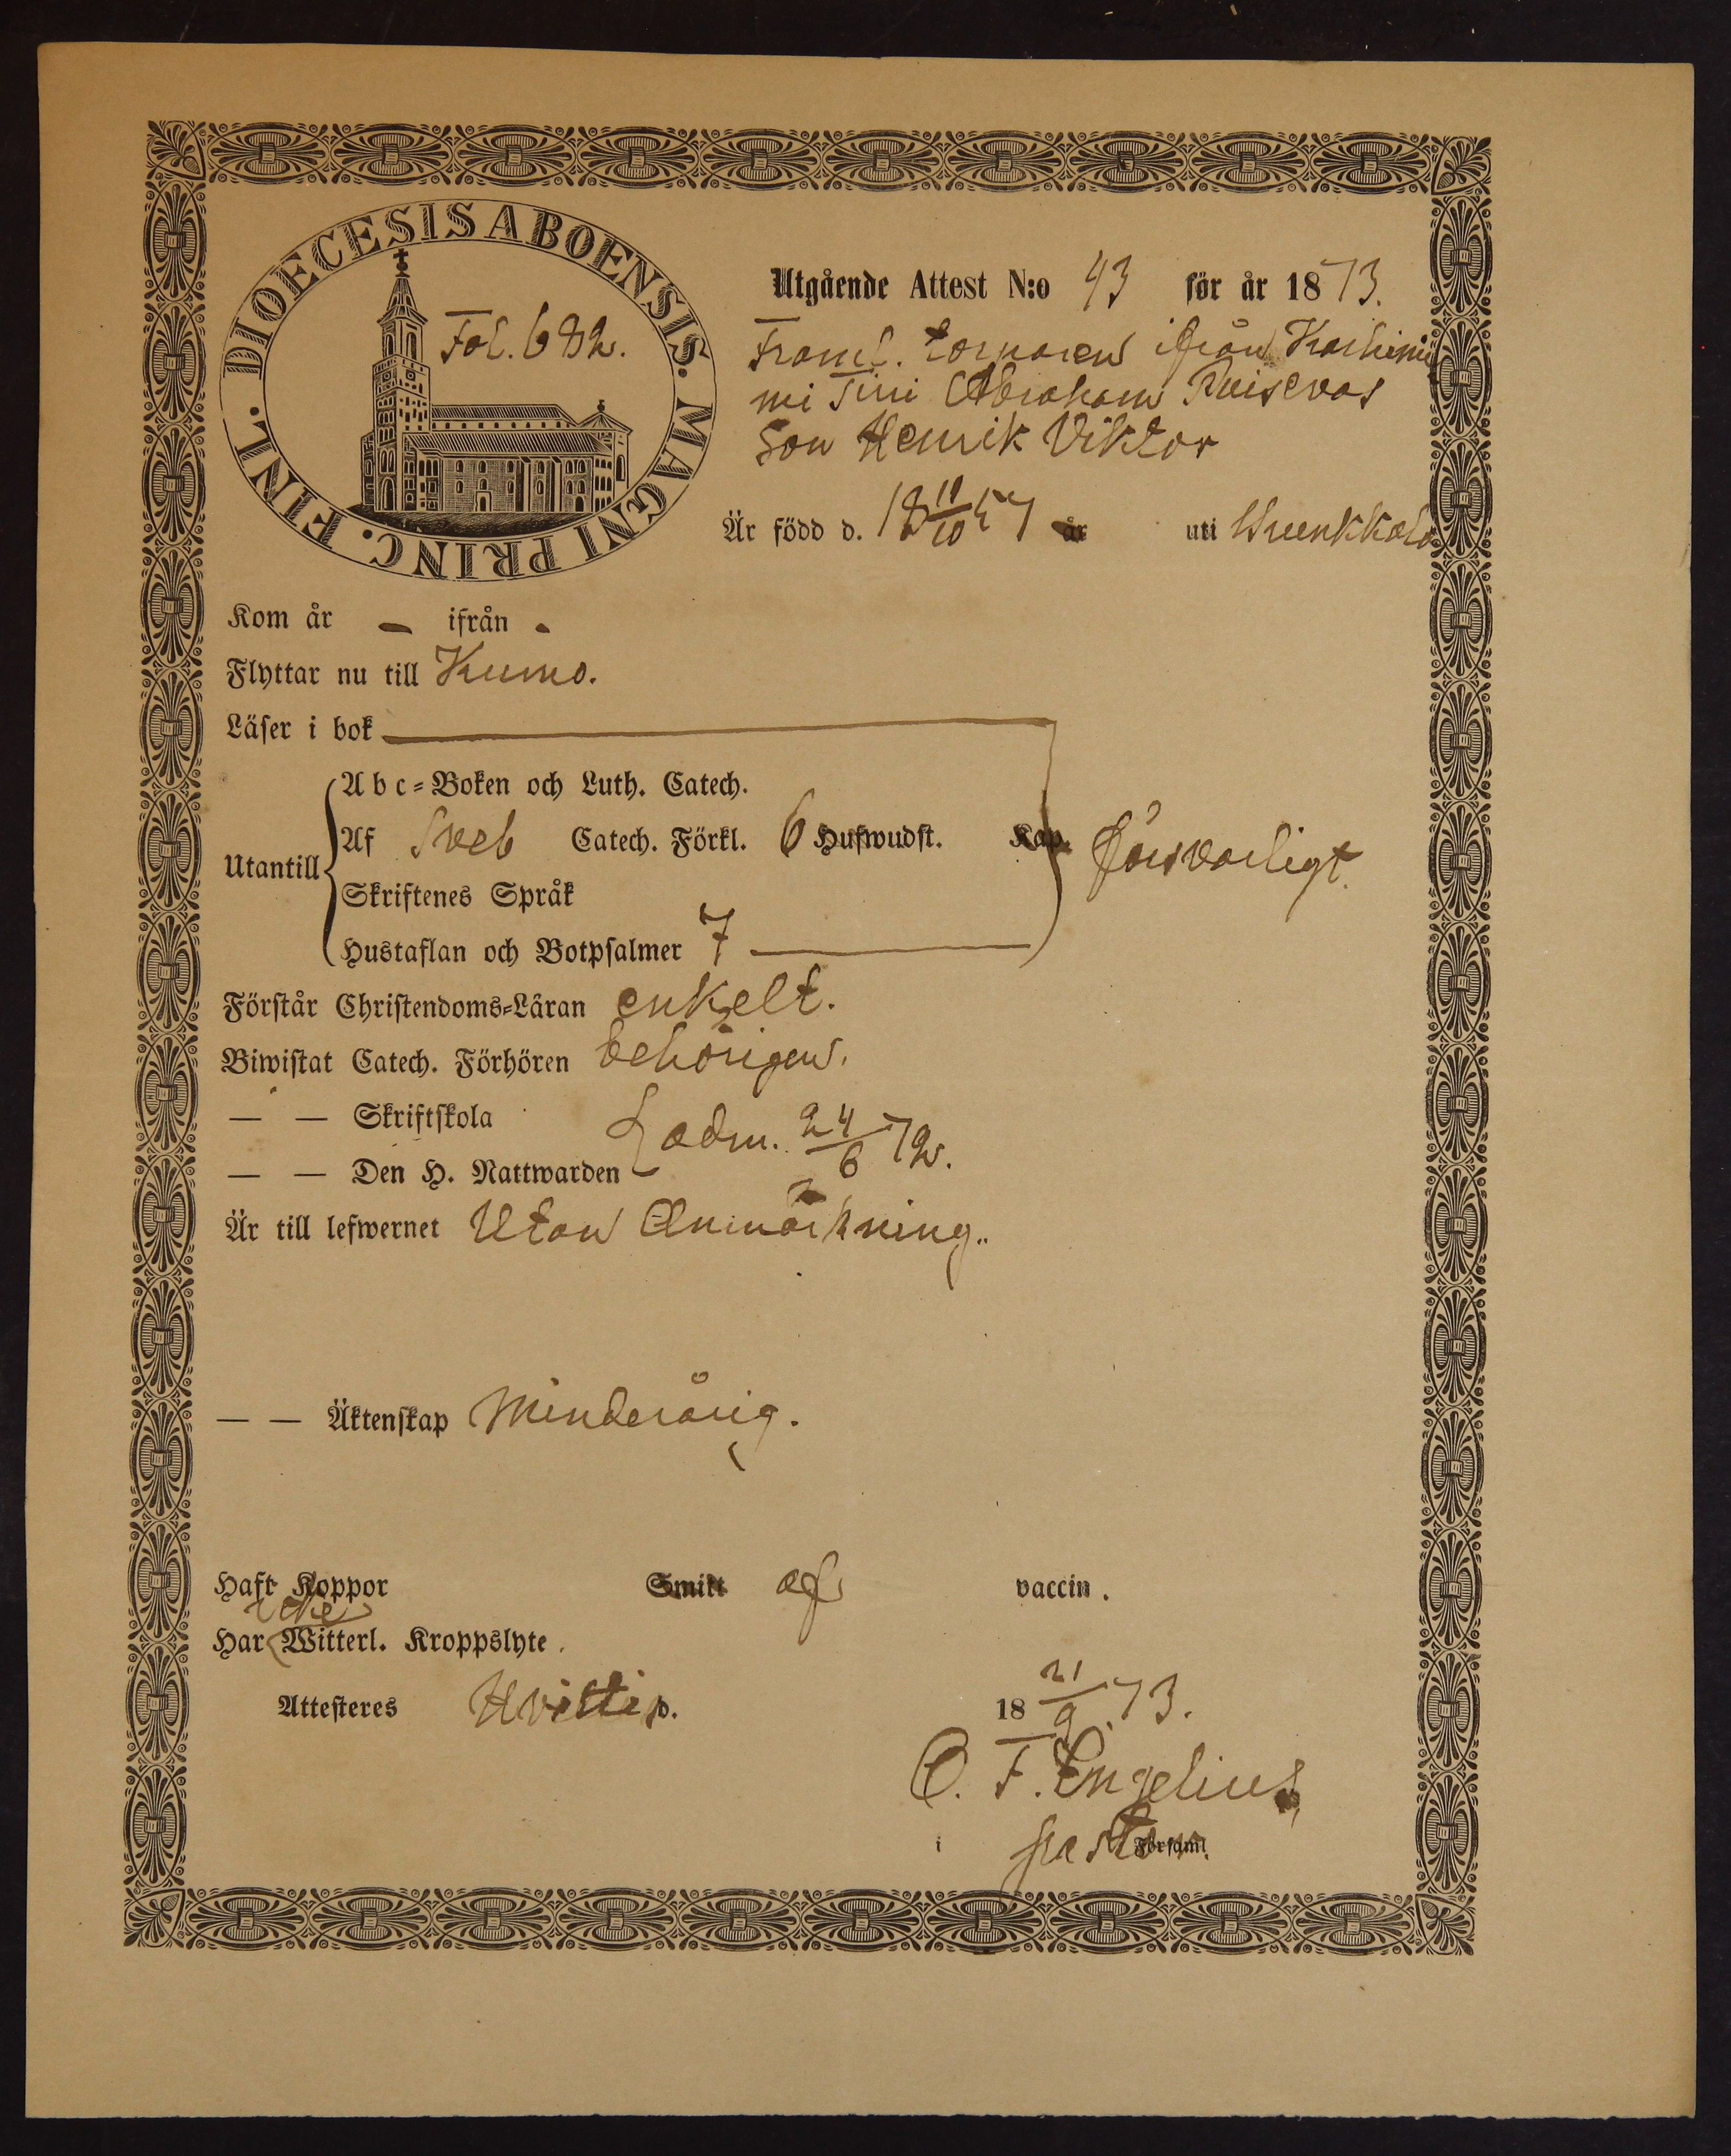 DIOECESIS ABOENSIS. MAGNI PRINC. FINL.
Fol. 682.
Utgående Attest N:o 43 för år 1873.
Framl. torparen ifrån
Abraham
Son Henrik Viktor
Är född d. 18 11/10 57 år uti
Kom år – ifrån –
Flyttar nu till Kumo.
Läser i bok
Utantill
A b c=Boken och Luth. Catech.
Af Sveb Catech. Förkl. 6 Hufwudst. Kap.
Försvarligt.
Skriftenes Språk
Hustaflan och Botpsalmer 7
Förstår Christendoms=Läran enkelt.
Biwistat Catech. Förhören behörigen.
— — Skriftskola
adm. 24/6 72.
— — Den H. Nattwarden
Är till lefwernet Utan Anmärkning.
— — Äktenskap Minderårig.
Haft Koppor Smitt af vaccin.
icke
Har Witterl. Kroppslyte.
Attesteres Hvittis p. 18 21/9 73.
C. F. Engelius
i pastor Församl.